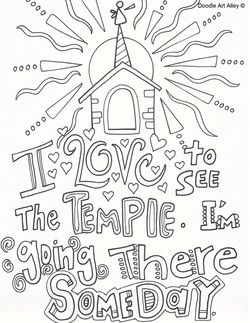 Doodle Art Alley ©
I LOVE to SEE
The TEMPLE. I'm
going There
SOMEDAY